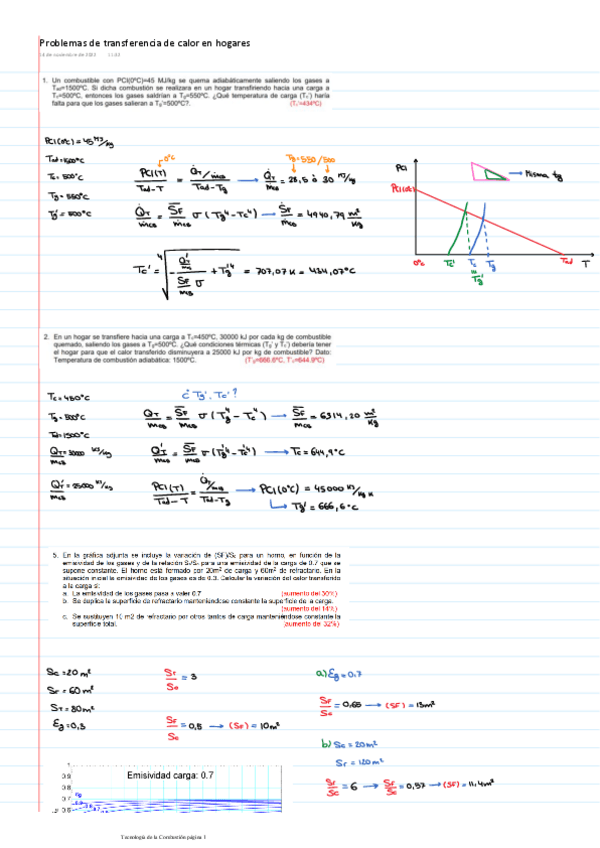 Problemas de transferencia de calor en hogares
1. Un combustible con PCI(0ºC)=45 MJ/kg se quema adiabáticamente saliendo los gases a
Tad=1500ºC. Si dicha combustión se realizara en un hogar transfiriendo hacia una carga a
Tc=500ºC, entonces los gases saldrían a Tg=550ºC. ¿Qué temperatura de carga (Tc') haría
falta para que los gases salieran a Tg'=500ºC? (Tc'=434ºC)
PCI(0ºC) = 45 MJ/kg
Tad = 1500ºC
Tc = 500ºC
Tg = 550ºC
Tg' = 500ºC
0ºC
PCI(T) / Tad - T = Q̇T/ṁcs / Tad - Tg
Tg = 550/500
Q̇T / ṁcs = 28,5 ó 30 MJ/kg
Q̇T / ṁcs = SF / ṁcs σ (Tg⁴ - Tc⁴) → SF / ṁcs = 4940,79 m²/kg
Tc' = ⁴√( - Q̇T'/ṁcs / SF/ṁcs σ + Tg'⁴ ) = 707,07 K = 434,07ºC
PCI
PCI(0ºC)
Misma tg
0ºC Tc' Tc Tg Tad T
Tg'
2. En un hogar se transfiere hacia una carga a Tc=450ºC, 30000 kJ por cada kg de combustible
quemado, saliendo los gases a Tg=500ºC. ¿Qué condiciones térmicas (Tg' y Tc') debería tener
el hogar para que el calor transferido disminuyera a 25000 kJ por kg de combustible? Dato:
Temperatura de combustión adiabática: 1500ºC. (T'g=666.6ºC, T'c=644.9ºC)
Tc = 450ºC
Tg = 500ºC
Tad = 1500ºC
QT / mcs = 30000 kJ/kg
QT' / mcs = 25000 kJ/kg
¿Tg', Tc'?
QT / mcs = SF / mcs σ (Tg⁴ - Tc⁴) → SF / mcs = 6314,20 m²/kg
QT' / mcs = SF / mcs σ (Tg'⁴ - Tc'⁴) → Tc = 644,9ºC
PCI(T) / Tad - T = Q̇T/mcs / Tad - Tg → PCI(0ºC) = 45000 kJ/kg K
Tg' = 666,6ºC
5. En la gráfica adjunta se incluye la variación de (SF)/Sc para un horno, en función de la
emisividad de los gases y de la relación Sr/Sc para una emisividad de la carga de 0.7 que se
supone constante. El horno está formado por 20m² de carga y 60m² de refractario. En la
situación inicial la emisividad de los gases es de 0.3. Calcular la variación del calor transferido
a la carga si:
a. La emisividad de los gases pasa a valer 0.7 (aumento del 30%)
b. Se duplica la superficie de refractario manteniéndose constante la superficie de la carga.
(aumento del 14%)
c. Se sustituyen 10 m2 de refractario por otros tantos de carga manteniéndose constante la
superficie total. (aumento de 32%)
Sc = 20 m²
Sr = 60 m²
ST = 80 m²
Eg = 0,3
Sr / Sc = 3
SF / Sc = 0,5 → (SF) = 10 m²
a) Eg = 0.7
SF / Sc = 0,65 → (SF) = 13 m²
b) Sc = 20 m²
Sr = 120 m²
Sr / Sc = 6 → SF / Sc = 0,57 → (SF) = 11,4 m²
Emisividad carga: 0.7
1
0.9
0.8
0.7
0.6
0.5
Tecnología de la Combustión página 1